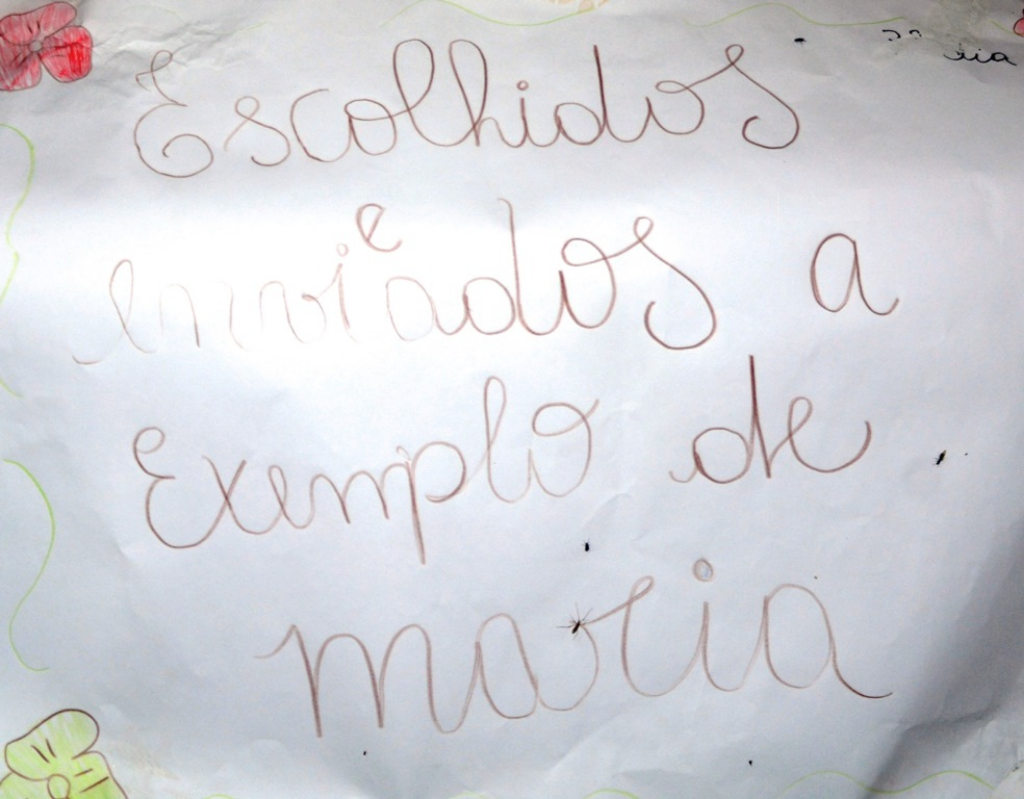 Escolhidos
e
enviados a
Exemplo de
maria